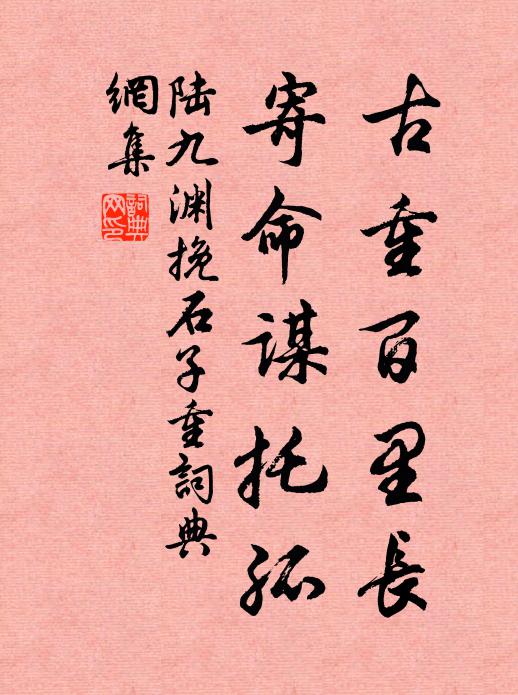 古重百里長
寄命謀托孤
陸九渊挽石子重詞典
網集
詞典
网印